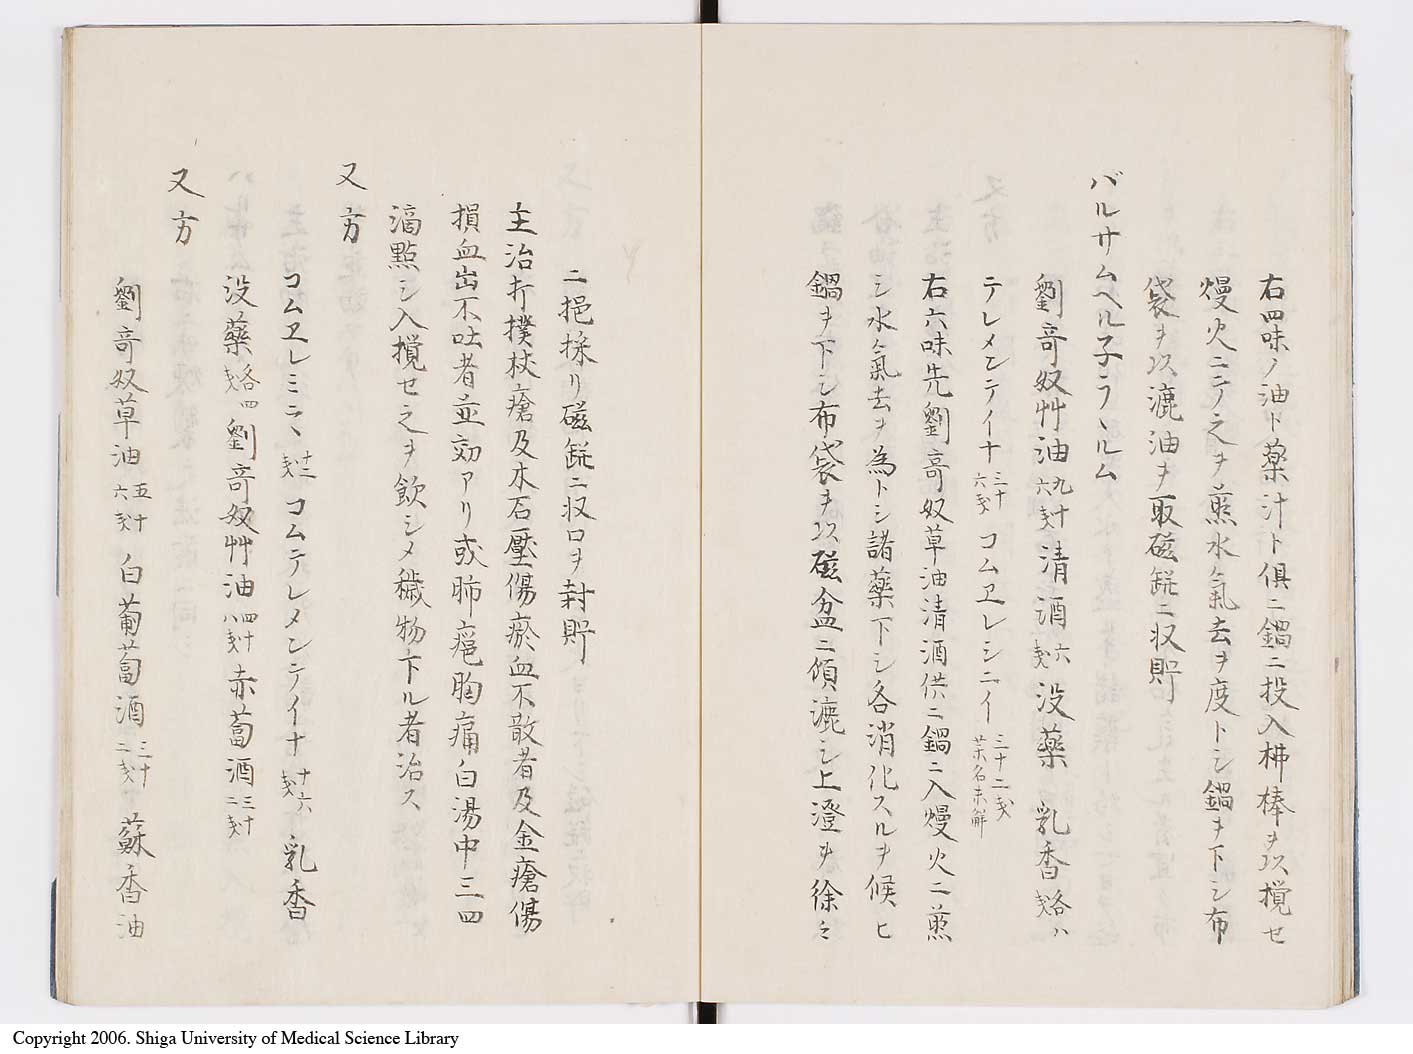 右四味ノ油ト薬汁ト俱ニ鍋ニ投入柳棒ヲ以攪セ
熳火ニテ之ヲ煎水氣去ヲ度トシ鍋ヲ下シ布
袋ヲ以漉油ヲ取磁鋌ニ収貯
バルサムヘル子ラヽルム
劉奇奴艸油九十六戔清酒六戔没薬 乳香各八戔
テレメンテイーナ三十六戔 コムヱレシニイ三十二戔葉名未解
右六味先劉奇奴草油清酒供ニ鍋ニ入熳火ニ煎
シ水氣去ヲ為トシ諸薬下シ各消化スルヲ候ヒ
鍋ヲ下シ布袋ヲ以磁盆ニ傾漉シ上澄ヲ徐々
ニ挹採リ磁鋌ニ収口ヲ封貯
主治打撲杖瘡及木石壓傷瘀血不散者及金瘡傷
損血出不吐者並効アリ或肺瘡胸痛白湯中三四
滴點シ入攪セ之ヲ飲シメ穢物下ル者治ス
又方
コムヱレミミヽ十二戔コムテレメンテイナ十六戔 乳香
没薬各四戔劉奇奴艸油四十八戔赤萄酒三十二戔
又方
劉奇奴草油五十六戔 白葡萄酒三十二戔 蘇香油
Copyright 2006. Shiga University of Medical Science Library